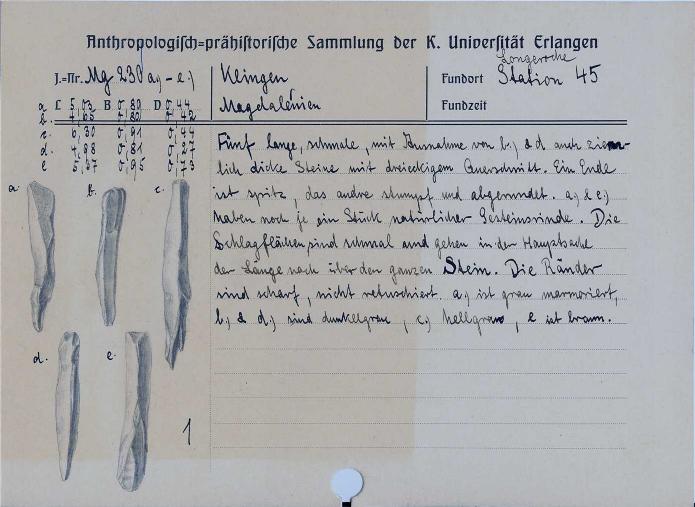 Anthropologisch=prähistorische Sammlung der K. Universität Erlangen
J.=Nr. Mg 230 a, - e.)
Klingen
Magdalénien
Longeroche
Fundort Station 45
Fundzeit
a L 5,03 B 0,80 D 0,44
b. 4,65 0,80 0,42
c. 6,30 0,91 0,44
d. 4,98 0,81 0,27
e 5,37 0,95 0,73
Fünf lange, schmale, mit Ausnahme von b.) & d auch ziem-
lich dicke Steine mit dreieckigem Querschnitt. Ein Ende
ist spitz, das andre stumpf und abgerundet. a.) & c.)
haben noch je ein Stück natürlicher Gesteinsrinde. Die
Schlagflächen sind schmal und gehen in der Hauptsache
der Länge nach über den ganzen Stein. Die Ränder
sind scharf, nicht retuschiert. a.) ist grau marmoriert,
b.) & d.) sind dunkelgrau, c.) hellgrau, e ist braun.
a.
b.
c.
d.
e.
1